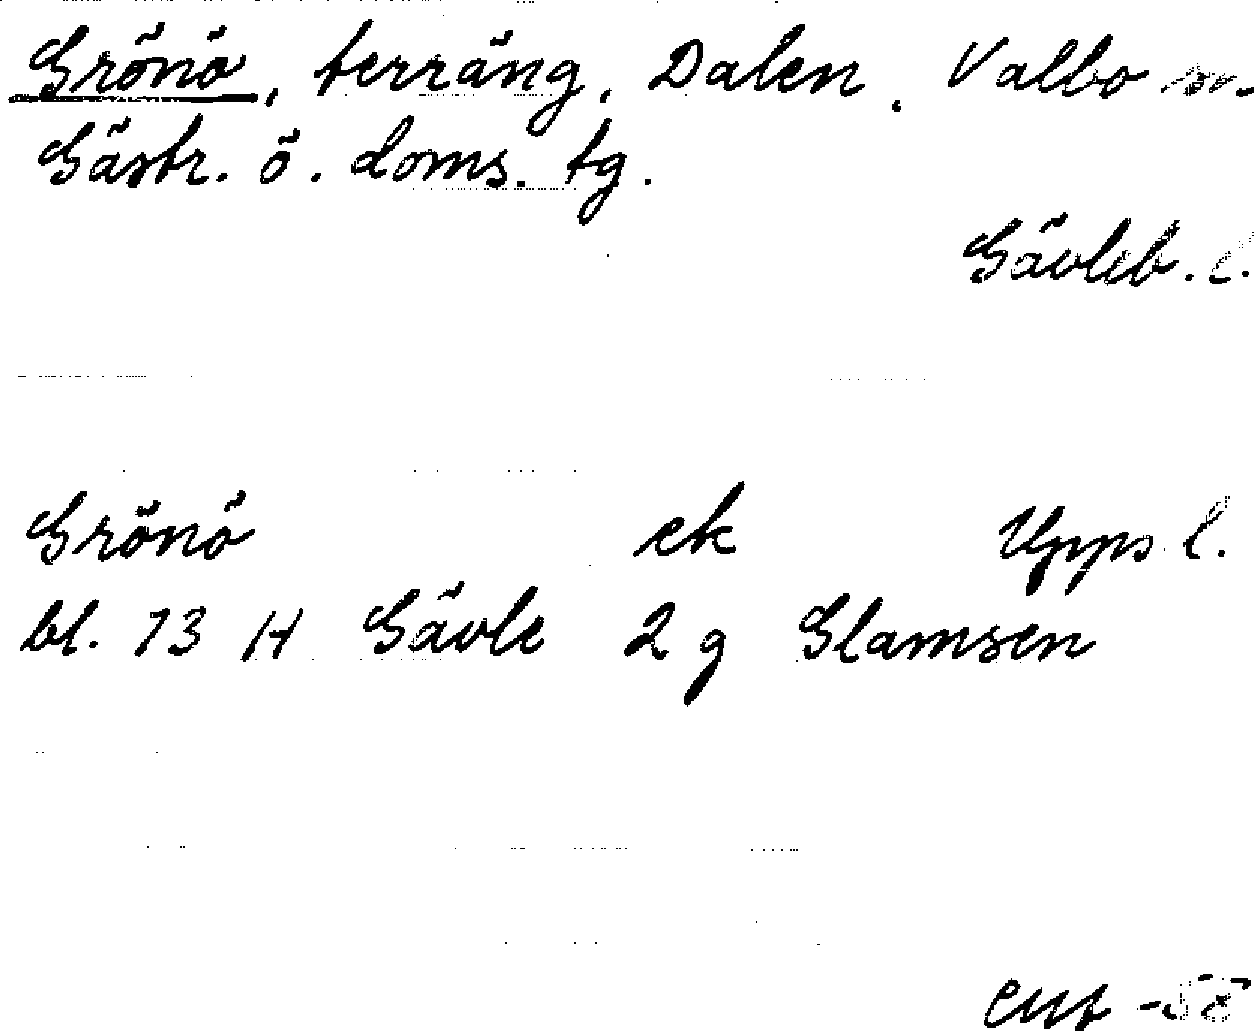 Grönö, terräng, Dalen. Valbo sn.
Gästr. ö. doms. tg.
Gävleb. l.
Grönö ek Upps l.
bl. 13 H Gävle 2 g Glamsen